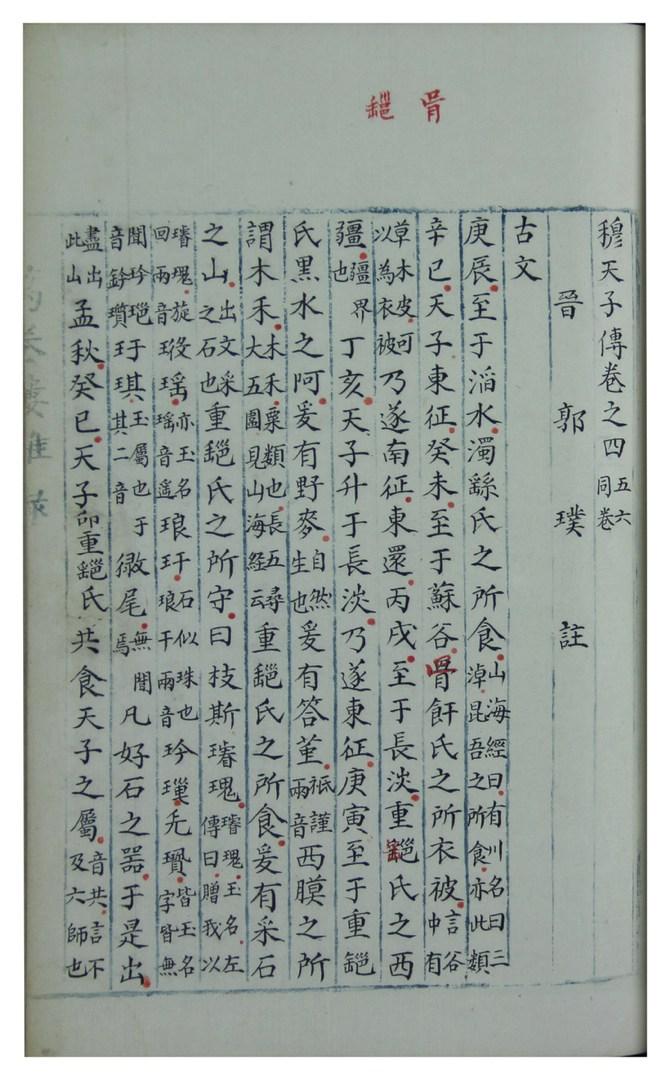 𩨬 䣛
穆天子傳卷之四 五六同卷
晉 郭 璞 註
古文
庚辰至于滔水濁繇氏之所食山海經曰有川名曰三淖昆吾之所食亦此類
辛巳天子東征癸未至于蘇谷骨飦氏之所衣被言谷中有
草木皮可以為衣被乃遂南征東還丙戌至于長淡重䣛氏之西
疆疆界也丁亥天子升于長淡乃遂東征庚寅至于重䣛
氏黑水之阿爰有野麥自然生也爰有答堇祇謹兩音西膜之所
謂木禾木禾粟類也長五尋大五圍見山海經云重䣛氏之所食爰有采石
之山出文采之石也重䣛氏之所守曰枝斯璿瑰璿瑰玉名左傳曰贈我以
璿瑰旋回兩音㻁瑤亦玉名瑤音遙琅玕石似珠也琅干兩音玪㻷玌㻞皆玉名字皆無
聞玪㻷音鈐瓚玗琪玉屬也于其二音㣲尾無聞焉凡好石之器于是出
盡出此山孟秋癸巳天子命重䣛氏共食天子之屬音共言不及六師也